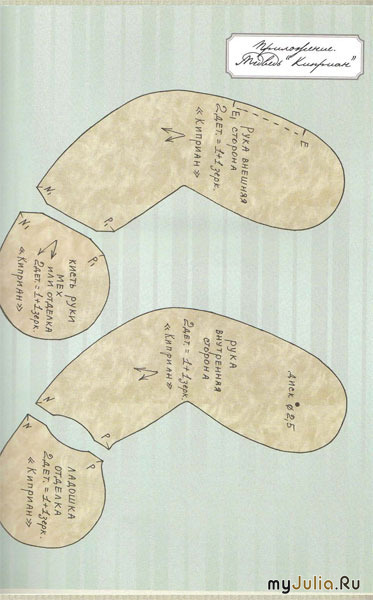 Приложение.
Медведь "Киприан"
E
E₁
Рука внешняя
сторона
2 дет. = 1+1 зерк.
«Киприан»
N₁
P₁
N₁
P₁
кисть руки
мех
или отделка
2 дет. = 1+1 зерк.
«Киприан»
рука
внутренняя
сторона
2 дет. = 1+1 зерк.
«Киприан»
диск ø 2,5
N
P
N
P
ладошка
отделка
2 дет. = 1+1 зерк.
«Киприан»
myJulia.Ru